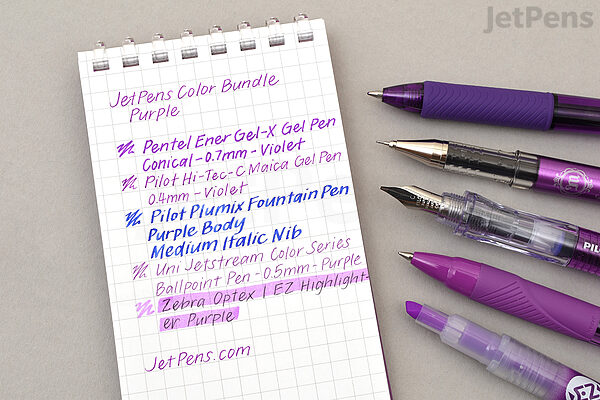 JetPens
JetPens Color Bundle
Purple
Pentel Ener Gel-X Gel Pen
Conical - 0.7mm - Violet
Pilot Hi-Tec-C Maica Gel Pen
0.4mm - Violet
Pilot Plumix Fountain Pen
Purple Body
Medium Italic Nib
Uni Jetstream Color Series
Ballpoint Pen - 0.5mm - Purple
Zebra Optex 1 EZ Highlight-
er Purple
JetPens.com
PIL
EZ